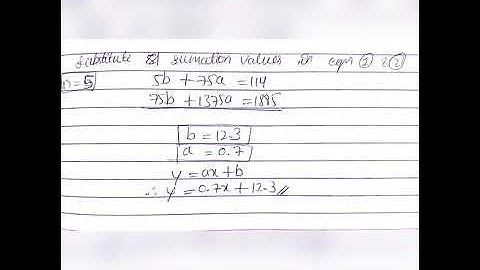 substitute summation values in eqn ① & ②
n=5
5b + 75a = 114
75b + 1375a = 1885
b = 12.3
a = 0.7
y = ax+b
∴ y = 0.7x + 12.3 //